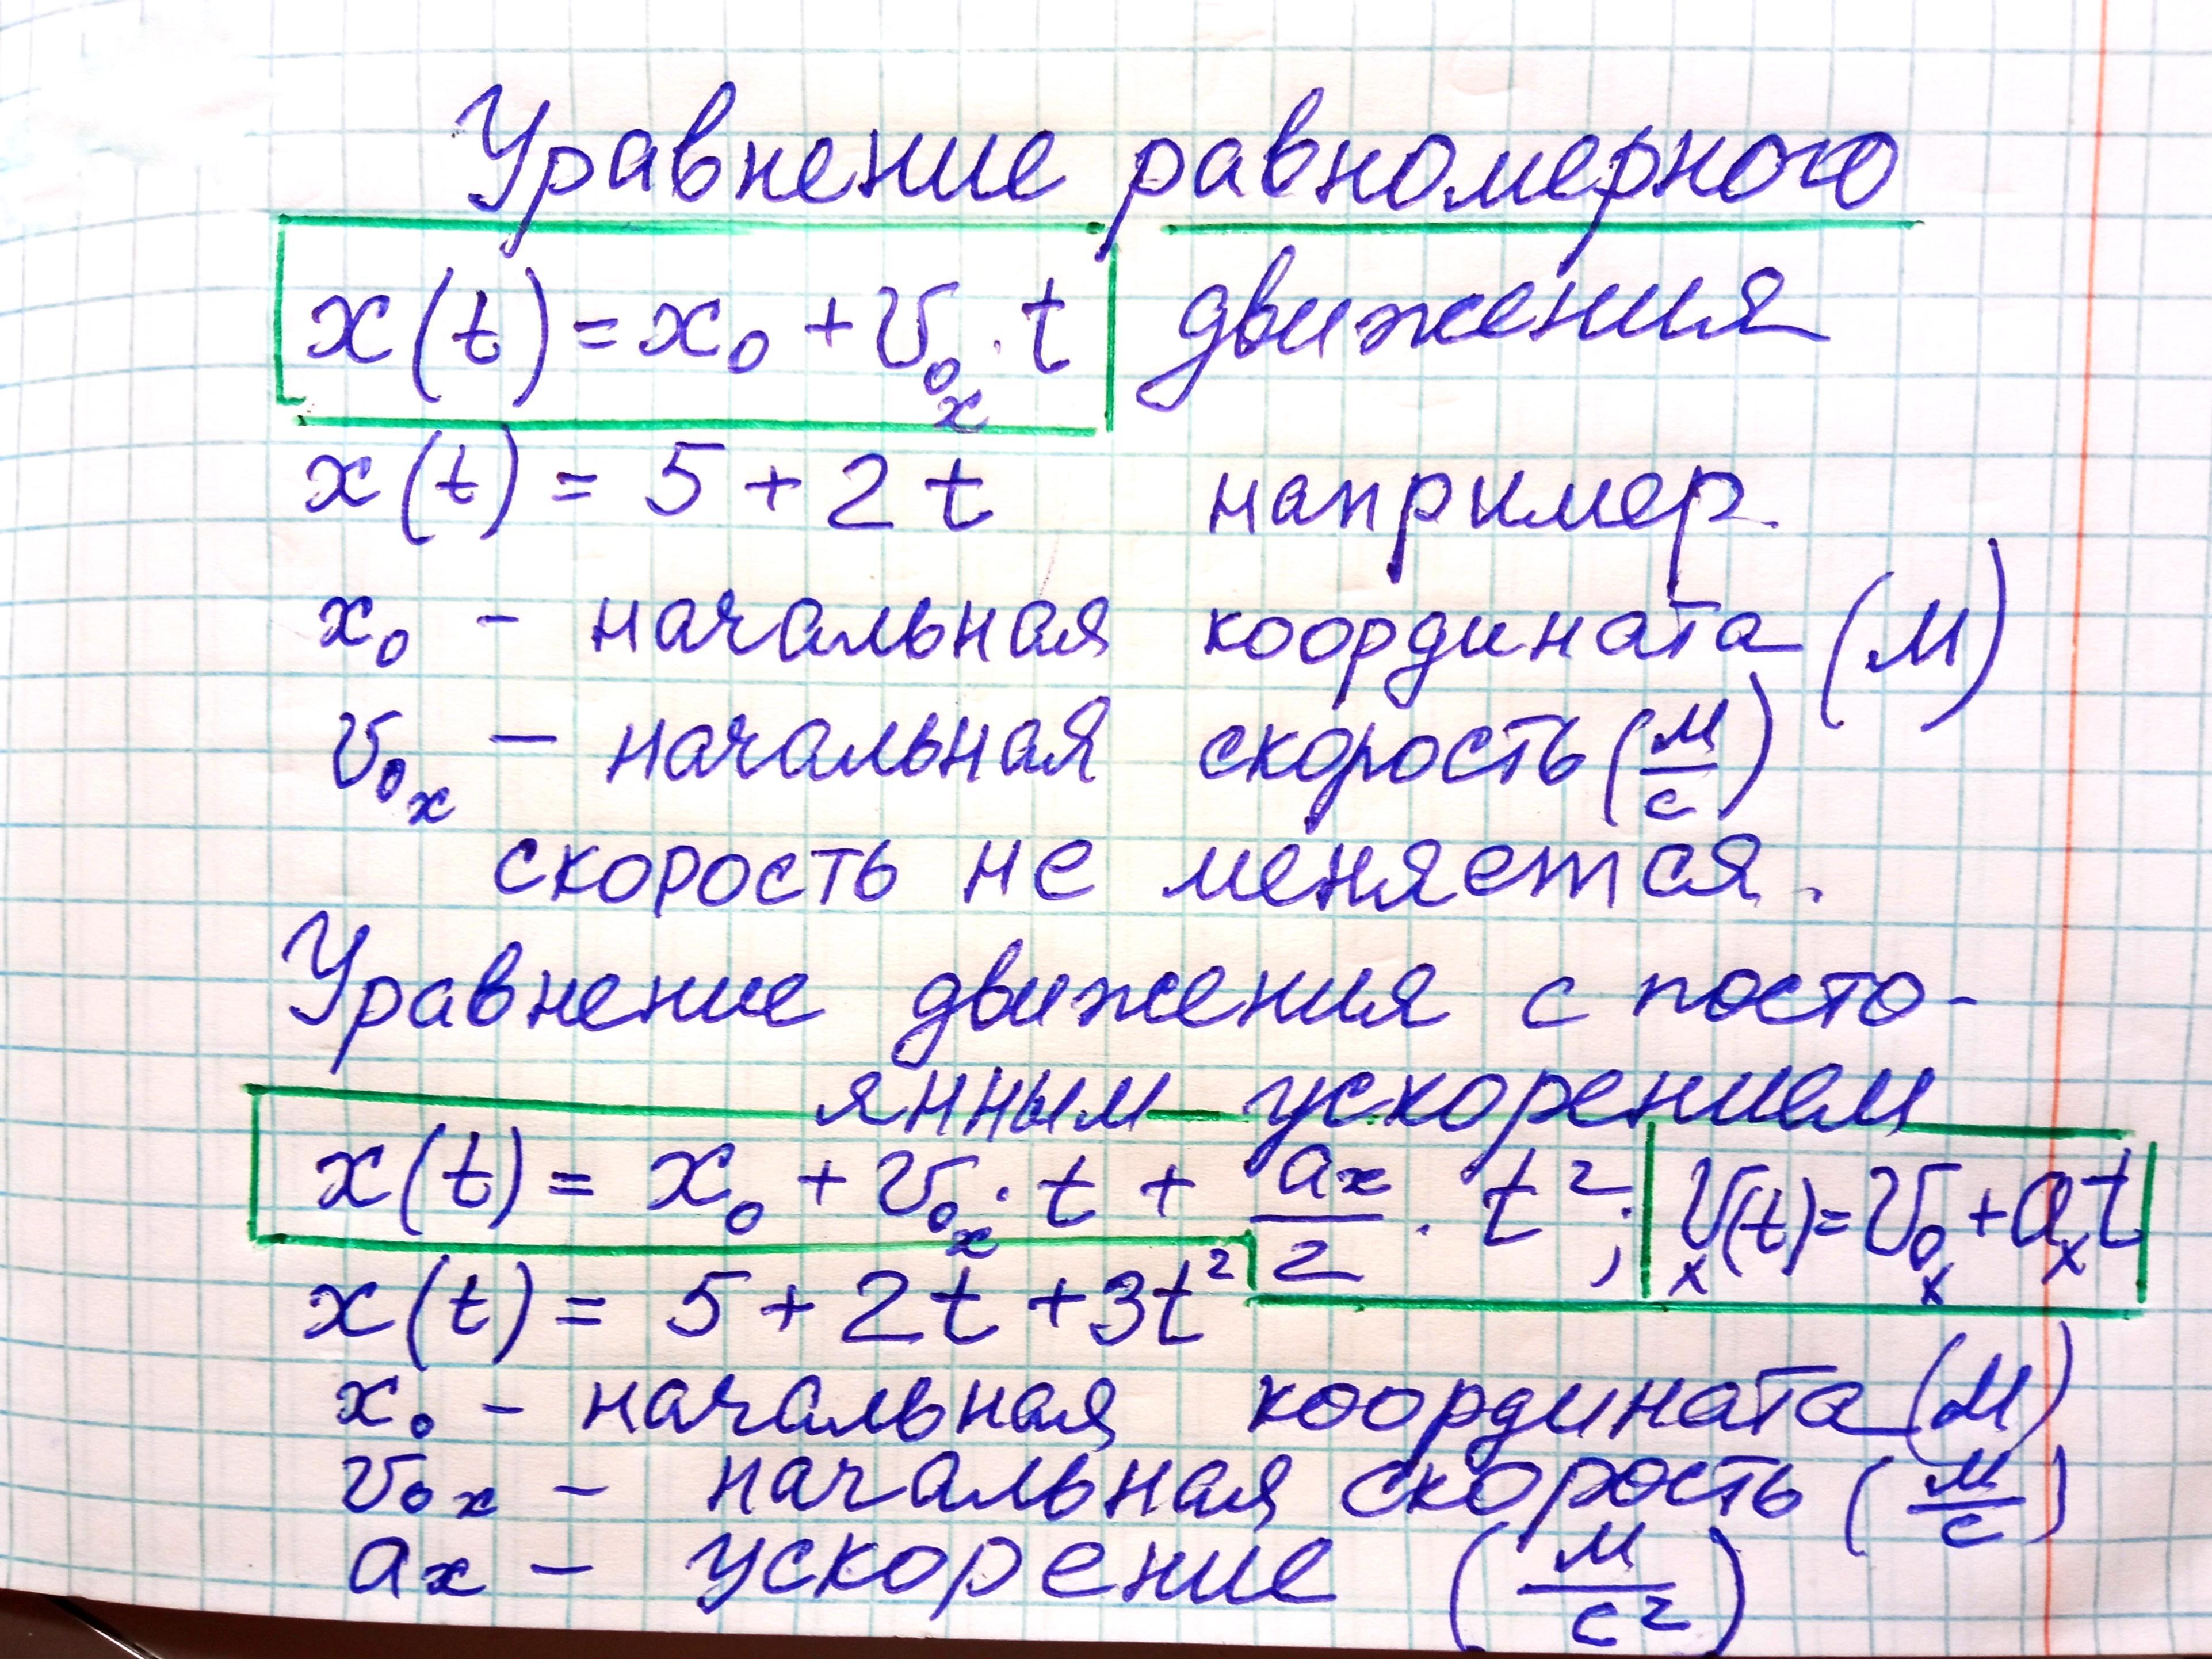 Уравнение равномерного
x(t) = x₀ + v₀ₓ · t движения
x(t) = 5 + 2t например
x₀ - начальная координата (м)
v₀ₓ – начальная скорость (м/с)
скорость не меняется.
Уравнение движения с посто-
янным ускорением
x(t) = x₀ + v₀ₓ · t + aₓ/2 · t²; vₓ(t) = v₀ₓ + aₓt
x(t) = 5 + 2t + 3t²
x₀ - начальная координата (м)
v₀ₓ – начальная скорость (м/с)
aₓ – ускорение (м/с²)